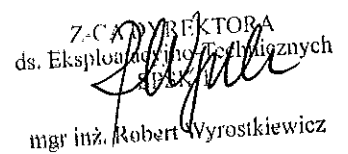 Z-CA DYREKTORA
ds. Eksploatacyjno-Technicznych
mgr inż. Robert Wyrostkiewicz